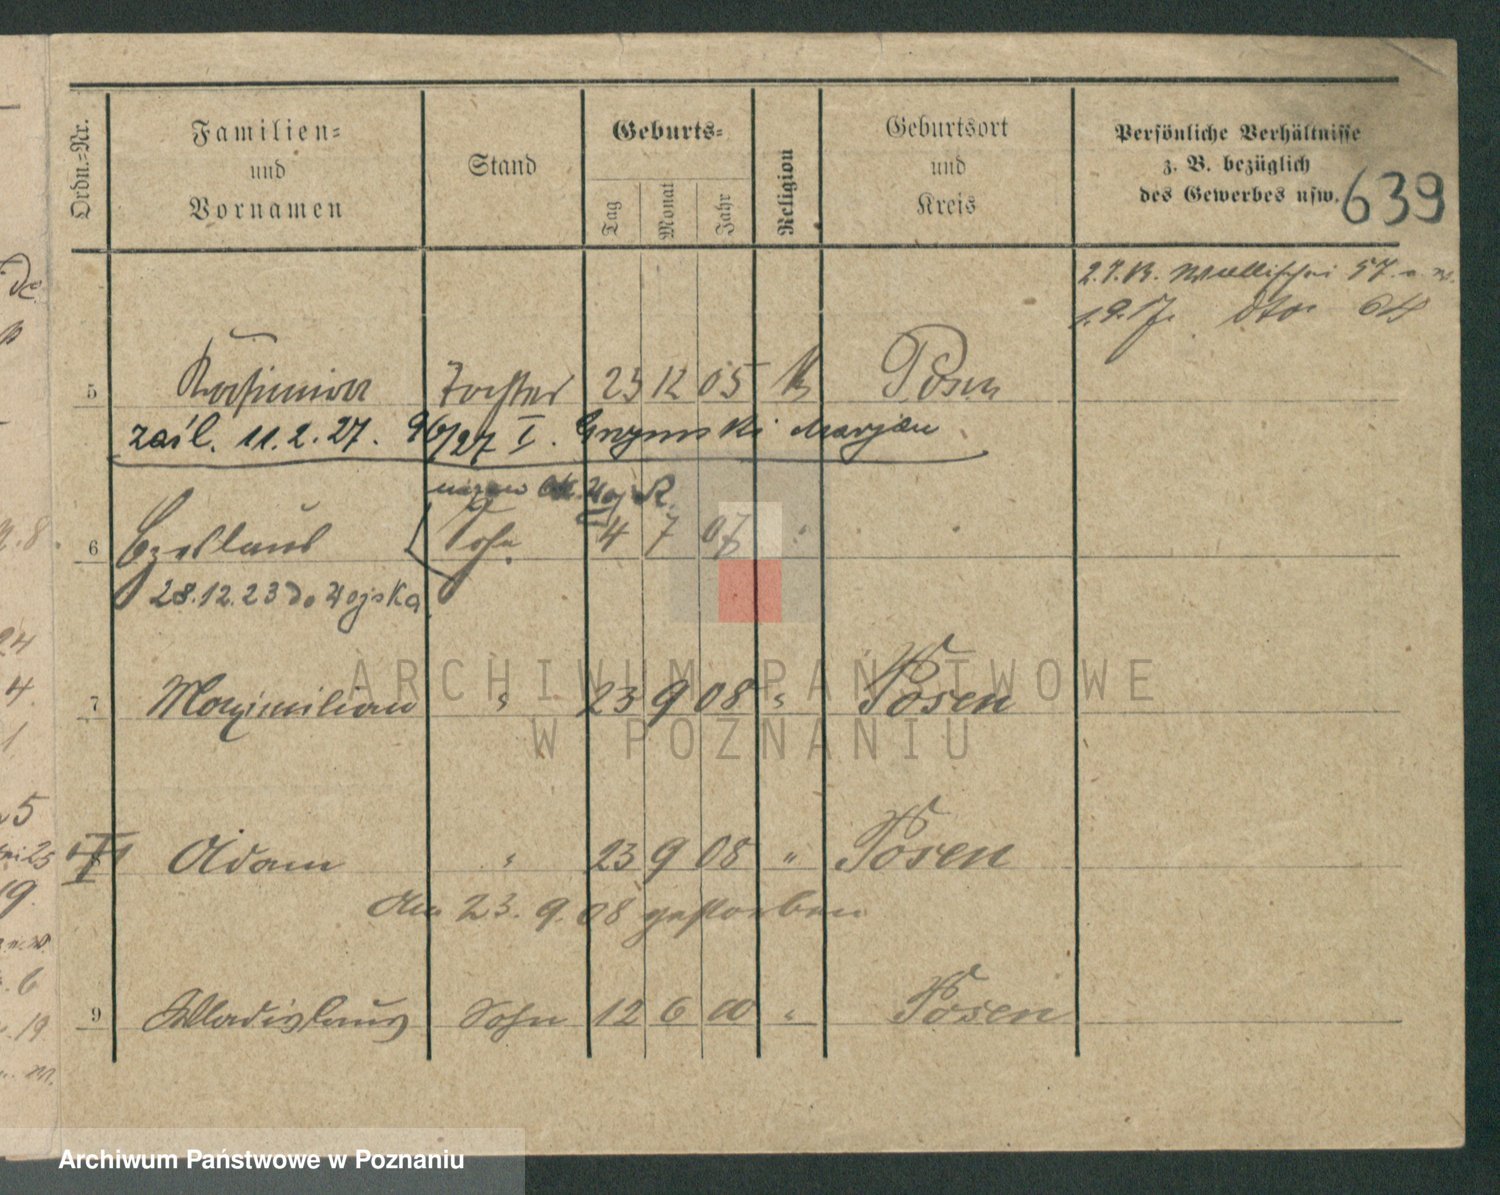 Ordn.=Nr.
Familien=
und
Vornamen
Stand
Geburts=
Tag
Monat
Jahr
Religion
Geburtsort
und
Kreis
Persönliche Verhältnisse
z. B. bezüglich
des Gewerbes usw.
639
2.7.13. Wallischei 57
1.9.17. dto 64
5 Kasimira Tochter 23 12 05 k Posen
zaśl. 11.2.27. 96/27 I. Grzymski Marjan
6 Czeslaus Sohn 4 7 07 "
28.12.23 do Wojska
7 Maximilian " 23 9 08 " Posen
8 Adam " 23 9 08 " Posen
Am 23. 9. 08 gestorben
9 Wladislaus Sohn 12 6 00 " Posen
ARCHIWUM PAŃSTWOWE
W POZNANIU
Archiwum Państwowe w Poznaniu